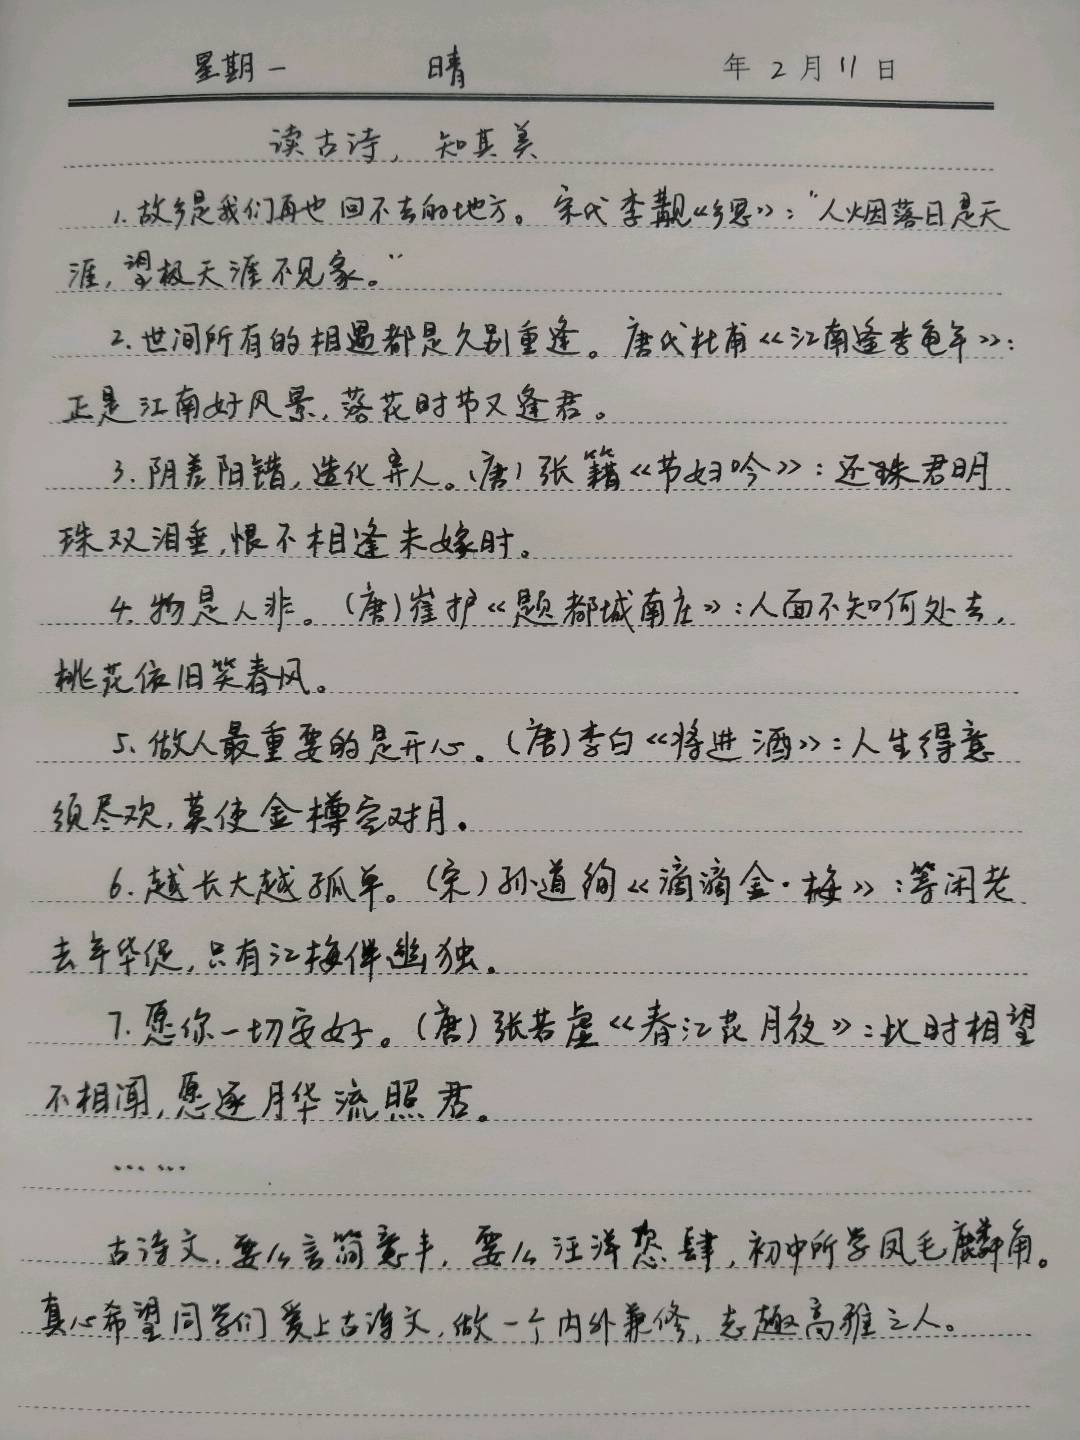 星期一 晴 年2月11日
读古诗，知其美
1.故乡是我们再也回不去的地方。宋代李觏《乡思》："人烟落日是天
涯，望极天涯不见家。"
2.世间所有的相遇都是久别重逢。唐代杜甫《江南逢李龟年》：
正是江南好风景，落花时节又逢君。
3.阴差阳错，造化弄人。（唐）张籍《节妇吟》：还珠君明
珠双泪垂，恨不相逢未嫁时。
4.物是人非。（唐）崔护《题都城南庄》：人面不知何处去，
桃花依旧笑春风。
5.做人最重要的是开心。（唐）李白《将进酒》：人生得意
须尽欢，莫使金樽空对月。
6.越长大越孤单。（宋）孙道绚《滴滴金·梅》：等闲老
去年华促，只有江梅伴幽独。
7.愿你一切安好。（唐）张若虚《春江花月夜》：此时相望
不相闻，愿逐月华流照君。
……
古诗文，要么言简意丰，要么汪洋恣肆，初中所学凤毛麟角。
真心希望同学们爱上古诗文，做一个内外兼修，志趣高雅之人。